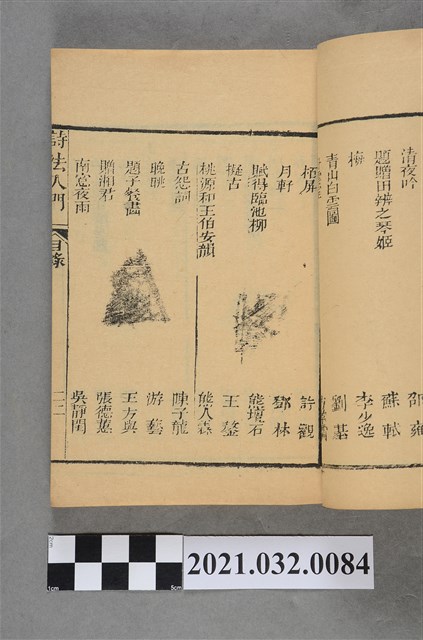 清夜吟 邵雍
題贈田辨之琴姬 蘇軾
梅 李少逸
青山白雲圖 劉基
梧屏 許觀
月軒 鄧林
賦得臨池柳 熊瓊石
擬古 王鏊
桃源和王伯安韻 熊人霖
古怨詞 陳子龍
晚眺 游藝
題子裝畵 王方與
贈湘君 張德蕙
南窓夜雨 吳靜閨
詩法入門
目錄
1cm
5cm
2021.032.0084